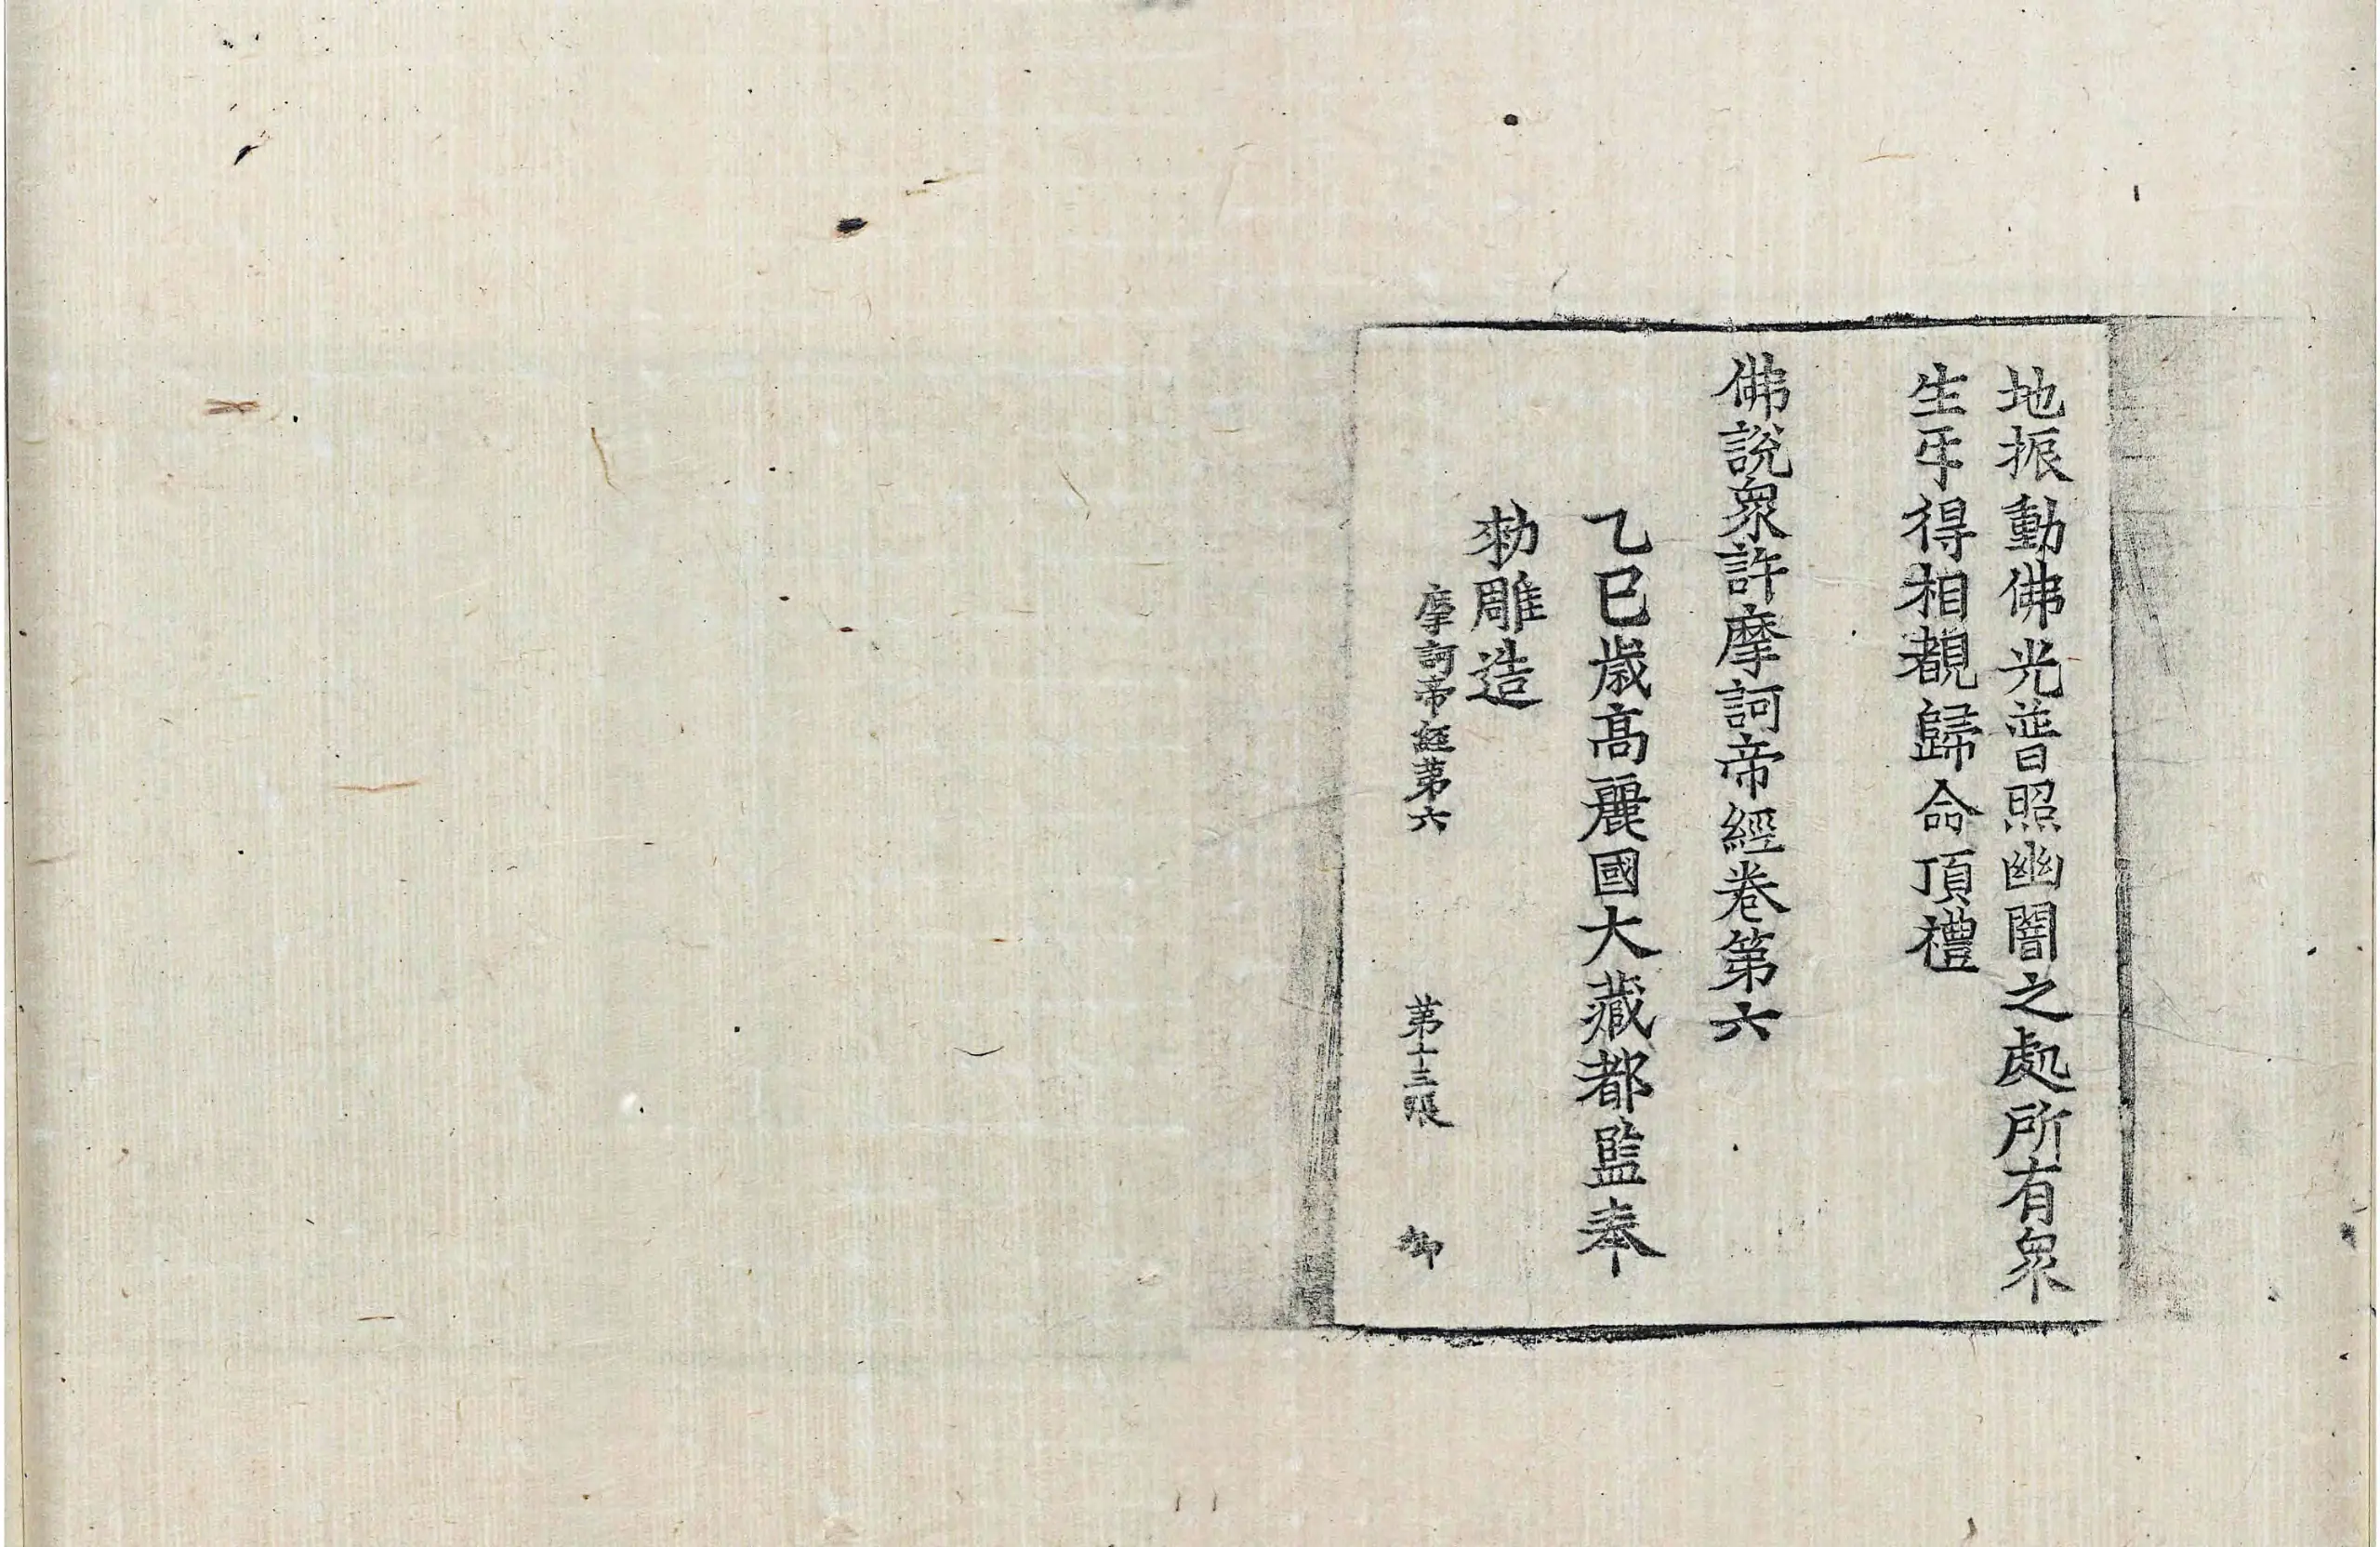 地振動佛光普照幽闇之處所有衆
生㸦得相覩歸命頂禮
佛說衆許摩訶帝經卷第六
乙巳歲高麗國大藏都監奉
勑雕造
摩訶帝經第六 第十三張 卿